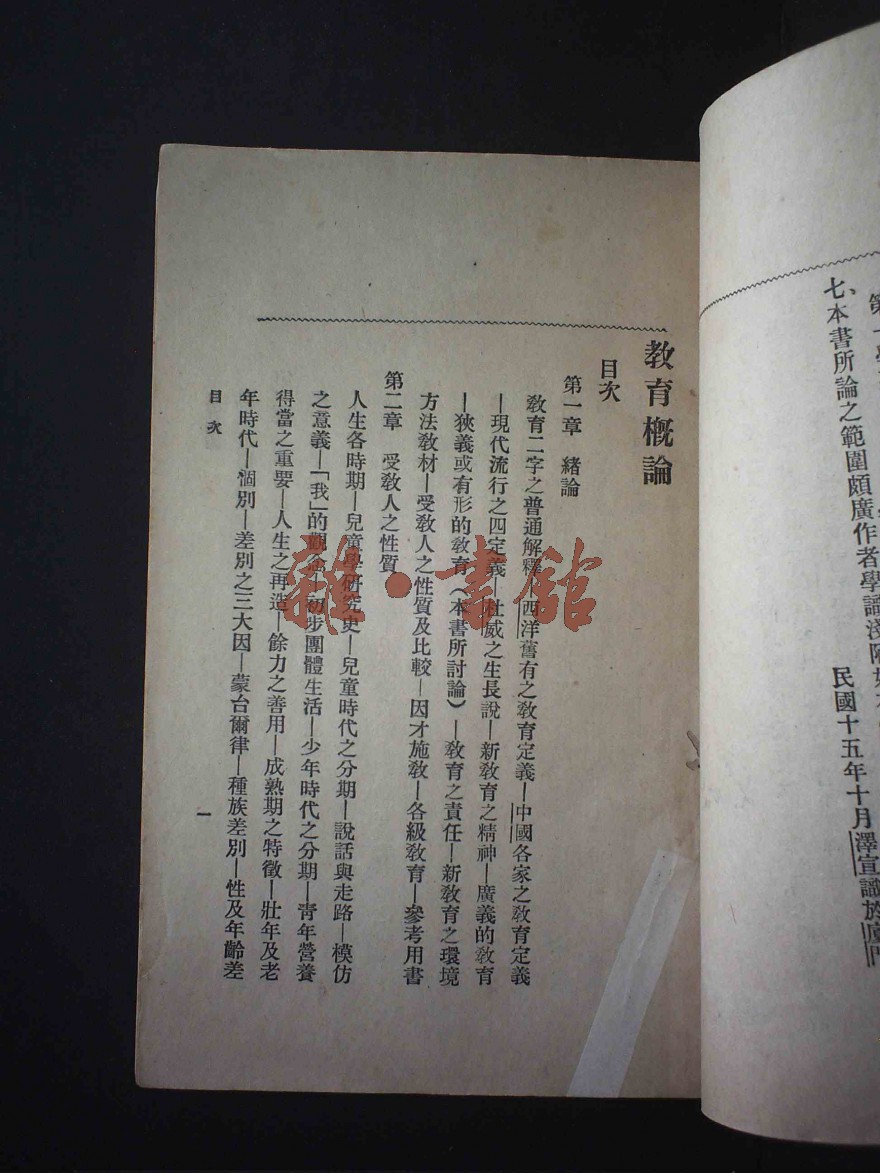 七、本書所論之範圍頗廣作者學識淺陋
民國十五年十月澤宣識於廈門
教育概論
目次
第一章　緒論
教育二字之普通解釋—西洋舊有之教育定義—中國各家之教育定義
—現代流行之四定義—杜威之生長說—新教育之精神—廣義的教育
—狹義或有形的教育（本書所討論）—教育之責任—新教育之環境
方法教材—受教人之性質及比較—因才施教—各級教育—參考用書
第二章　受教人之性質
人生各時期—兒童學研究史—兒童時代之分期—說話與走路—模仿
之意義—「我」的觀念—初步團體生活—少年時代之分期—靑年營養
得當之重要—人生之再造—餘力之善用—成熟期之特徵—壯年及老
年時代—個別—差別之三大因—蒙台爾律—種族差別—性及年齡差
目次
一
雜·書館